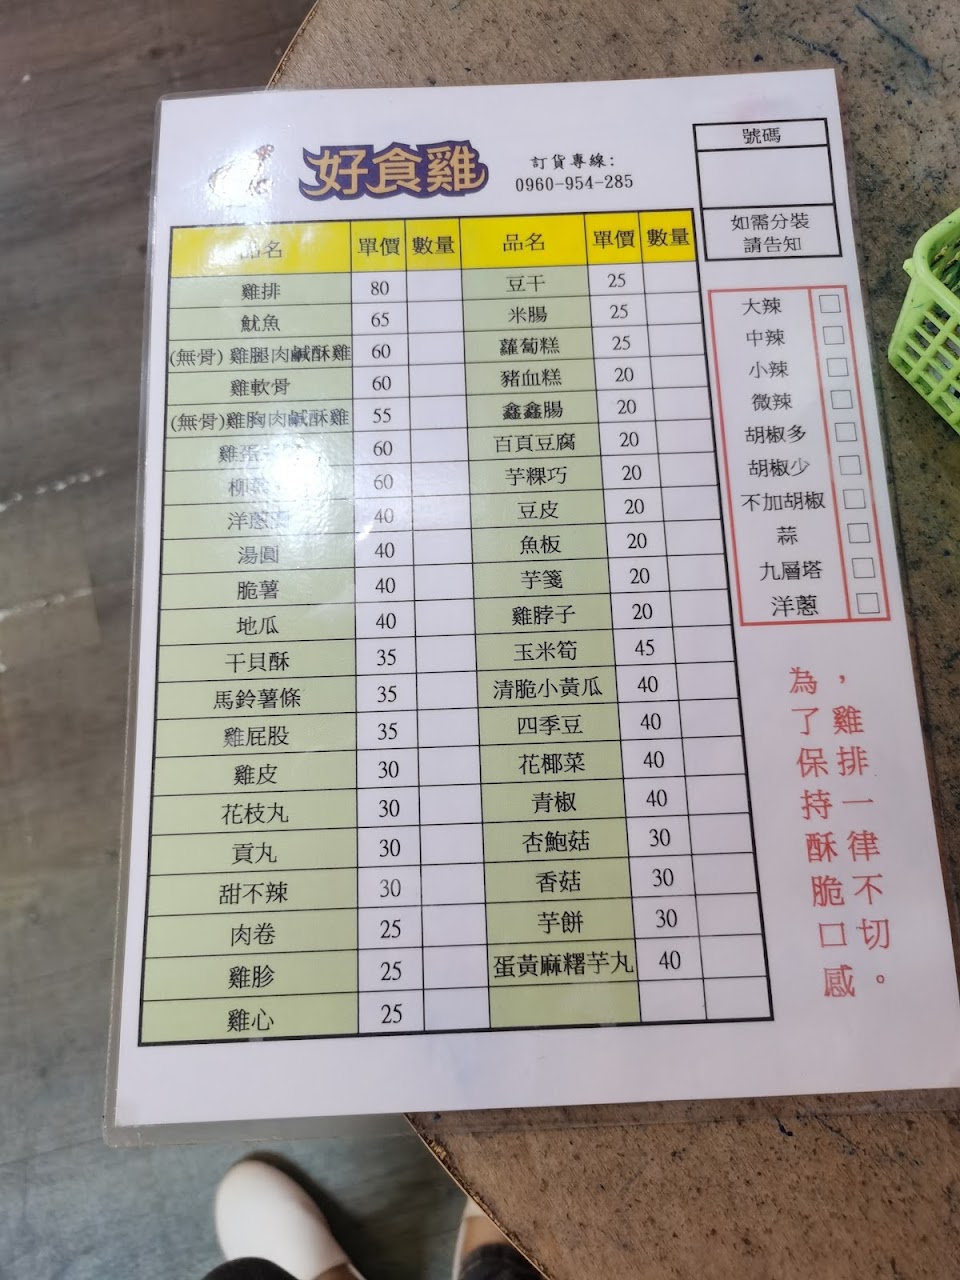 好食雞
訂貨專線:
0960-954-285
號碼
如需分裝
請告知
品名 單價 數量 品名 單價 數量
雞排 80 豆干 25
魷魚 65 米腸 25
(無骨) 雞腿肉鹹酥雞 60 蘿蔔糕 25
雞軟骨 60 豬血糕 20
(無骨)雞胸肉鹹酥雞 55 鑫鑫腸 20
雞蛋 60 百頁豆腐 20
柳 60 芋粿巧 20
洋蔥 40 豆皮 20
湯圓 40 魚板 20
脆薯 40 芋箋 20
地瓜 40 雞脖子 20
干貝酥 35 玉米筍 45
馬鈴薯條 35 清脆小黃瓜 40
雞屁股 35 四季豆 40
雞皮 30 花椰菜 40
花枝丸 30 青椒 40
貢丸 30 杏鮑菇 30
甜不辣 30 香菇 30
肉卷 25 芋餅 30
雞胗 25 蛋黃麻糬芋丸 40
雞心 25
大辣
中辣
小辣
微辣
胡椒多
胡椒少
不加胡椒
蒜
九層塔
洋蔥
為了保持酥脆口感
，雞排一律不切。